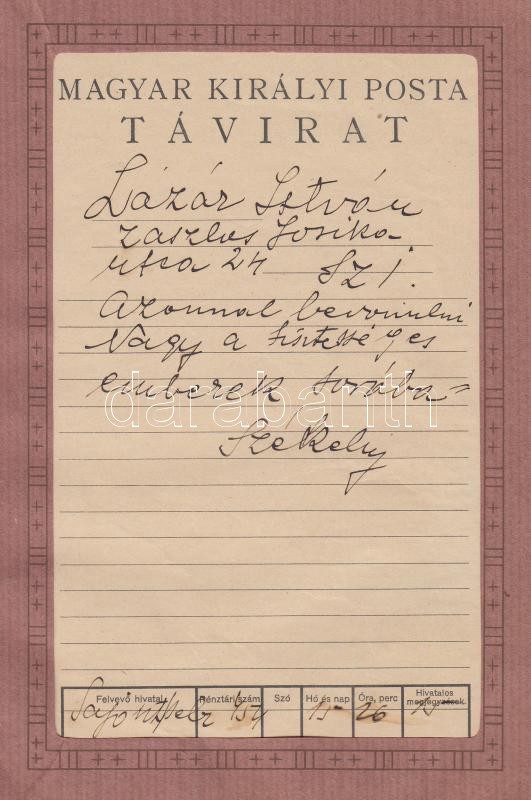 MAGYAR KIRÁLYI POSTA
TÁVIRAT
Lázár István
zászlós Josika
utca 24
Azonnal bevonulni
Nagy a tisztességes
emberek sorába =
darabanth
Székely
Felvevő hivatal Pénztári szám Szó Hó és nap Óra, perc Hivatalos megjegyzések
15 26 15